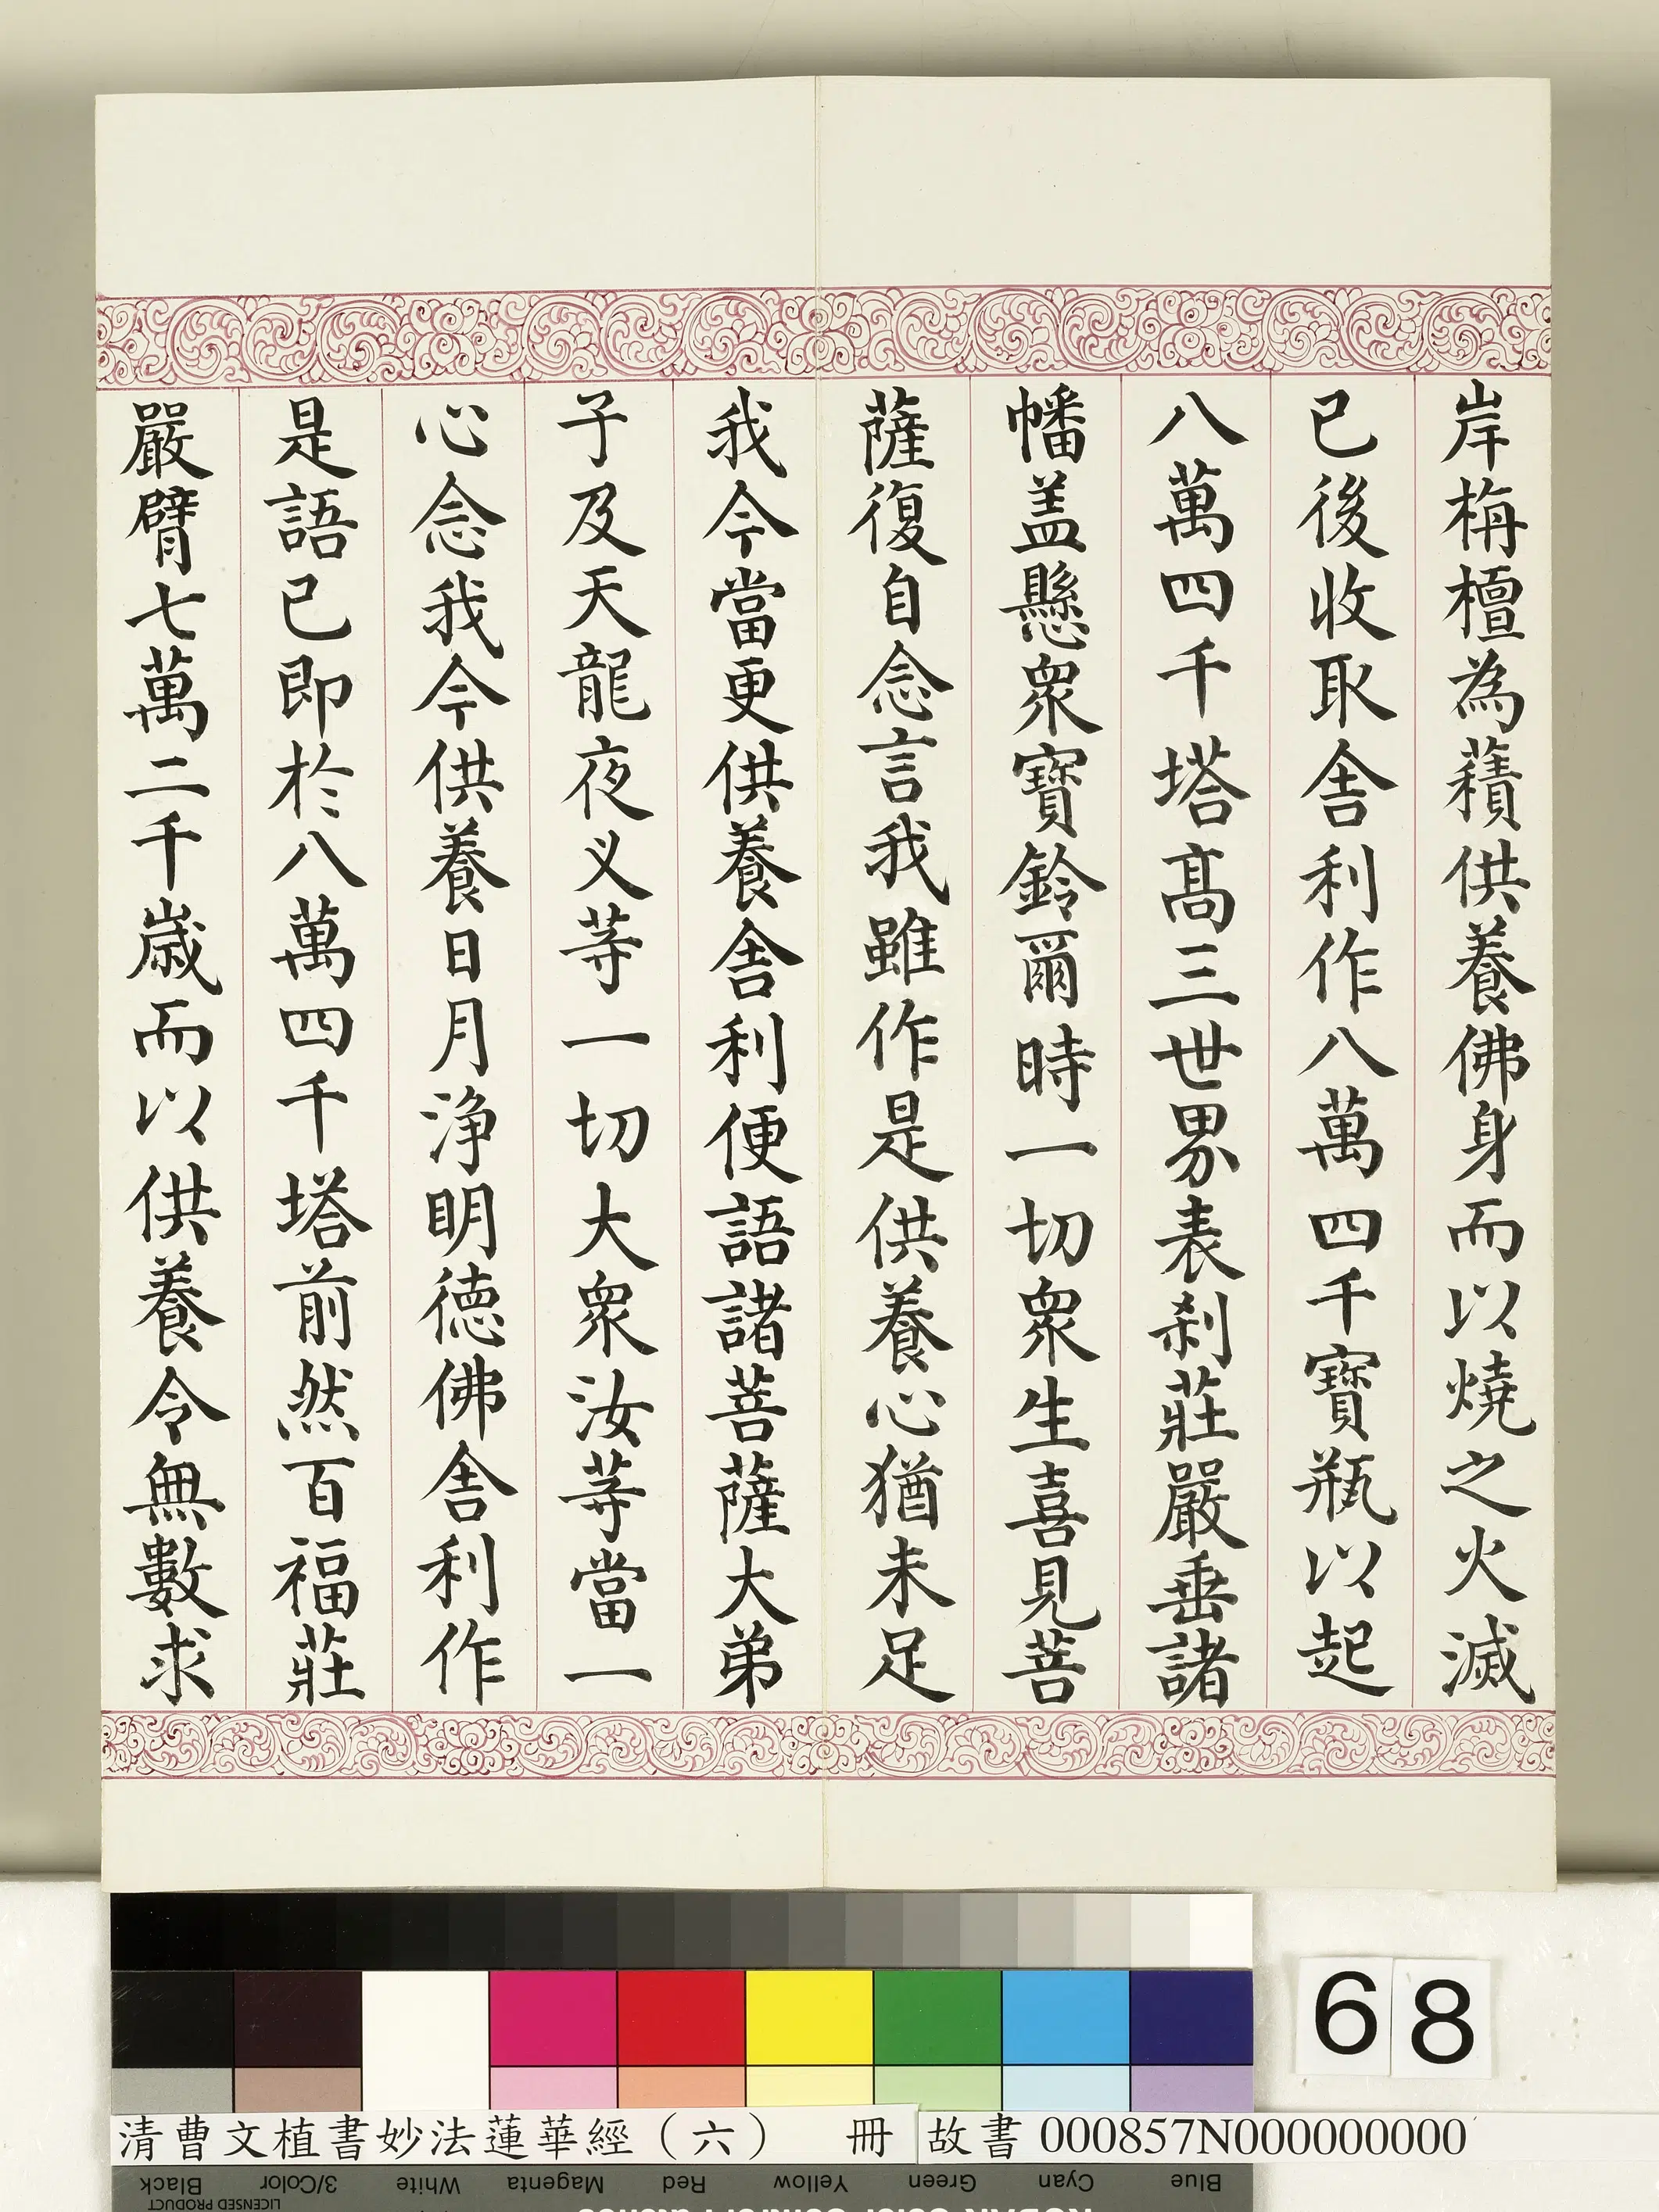 岸栴檀為𧂐供養佛身而以燒之火滅
已後收取舍利作八萬四千寶瓶以起
八萬四千塔髙三世界表剎莊嚴垂諸
幡盖懸衆寶鈴爾時一切衆生喜見菩
薩復自念言我雖作是供養心猶未足
我今當更供養舍利便語諸菩薩大弟
子及天龍夜义等一切大衆汝等當一
心念我今供養日月淨明德佛舍利作
是語已即於八萬四千塔前然百福莊
嚴臂七萬二千歲而以供養令無數求
68
清曹文植書妙法蓮華經（六） 冊 故書 000857N000000000
Black 3/Color White Magenta Red Yellow Green Cyan Blue
LICENSED PRODUCT